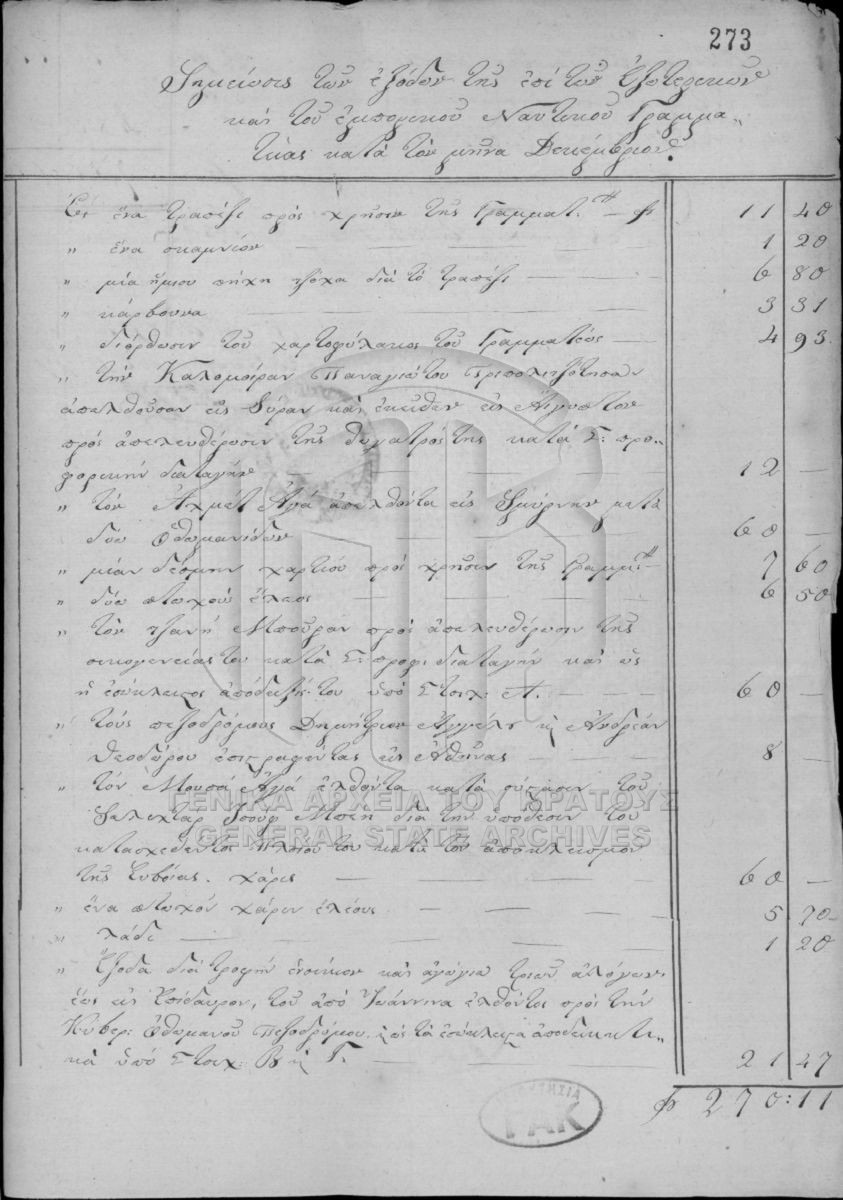 273
Σημείωσις τῶν ἐξόδων τῆς ἐπὶ τῶν Ἐξωτερικῶν
καὶ τοῦ ἐμπορικοῦ Ναυτικοῦ Γραμμα„
τείας κατὰ τὸν μῆνα Δεκέμβριον.
Εἰς ἕνα τραπέζι πρὸς χρῆσιν τῆς Γραμματ. 11 40
„ ἕνα σκαμνίον 1 20
„ μία ἥμισυ πήχη τζόχα διὰ τὸ τραπέζι 6 80
„ κάρβουνα 3 31
„ διόρθωσιν τοῦ χαρτοφύλακος τοῦ Γραμματέως 4 93
„ τὴν Καλομοίραν Παναγιώτου Τριπολιτζώτησαν
ἀπελθοῦσαν εἰς Σύραν καὶ ἐκεῖθεν εἰς Αἴγυπτον
πρὸς ἀπελευθέρωσιν τῆς θυγατρός της κατὰ Σ: προ„
φορικὴν διαταγήν 12 —
„ τὸν Ἀχμὲτ Ἀγᾶ ἀπελθόντα εἰς Σμύρνην μετὰ
δύο Ὀθωμανίδων 60 —
„ μίαν δέσμην χαρτίου πρὸς χρῆσιν τῆς Γραμμ. 7 60
„ δύο πτωχοὺς ἔλεος 6 50
„ τὸν τζανὴ Μπούραν πρὸς ἀπελευθέρωσιν τῆς
οἰκογενείας του κατὰ Σ: προφ: διαταγὴν καὶ ὡς
ἡ ἐσώκλειστος ἀπόδειξίς του ὑπὸ Στοιχ: Α. 60 —
„ τοὺς πεζοδρόμους Δημήτριον Ἀγγέλη κ Ἀνδρέαν
Θεοδώρου ἐπιστραφέντας εἰς Ἀθήνας 8 —
„ τὸν Μουσᾶ Ἀγᾶ ἐλθόντα κατὰ σύστασιν τοῦ
Σελιχτὰρ Ἰσοὺφ Μπέη διὰ τὴν ὑπόθεσιν τοῦ
κατασχεθέντος πλοίου του κατὰ τὸν ἀποκλεισμὸν
τῆς Εὐβοίας. χάρις 60 —
„ ἕνα πτωχὸν χάριν ἐλέους 5 70
„ λάδι 1 20
„ Ἔξοδα διὰ τροφὴν ἐνοίκιον καὶ ἀγώγια τριῶν ἀλόγων
ἕως εἰς Ἐπίδαυρον, τοῦ ἀπὸ Ἰωάννινα ἐλθόντος πρὸς τὴν
Κυβέρ: Ὀθωμανοῦ Πεζοδρόμου, ὡς τὰ ἐσώκλειστα ἀποδεικτι„
κὰ ὑπὸ Στοιχ: Β κ Γ. 21 47
270:11
ΓΕΝΙΚΑ ΑΡΧΕΙΑ ΤΟΥ ΚΡΑΤΟΥΣ
GENERAL STATE ARCHIVES
ΓΑΚ